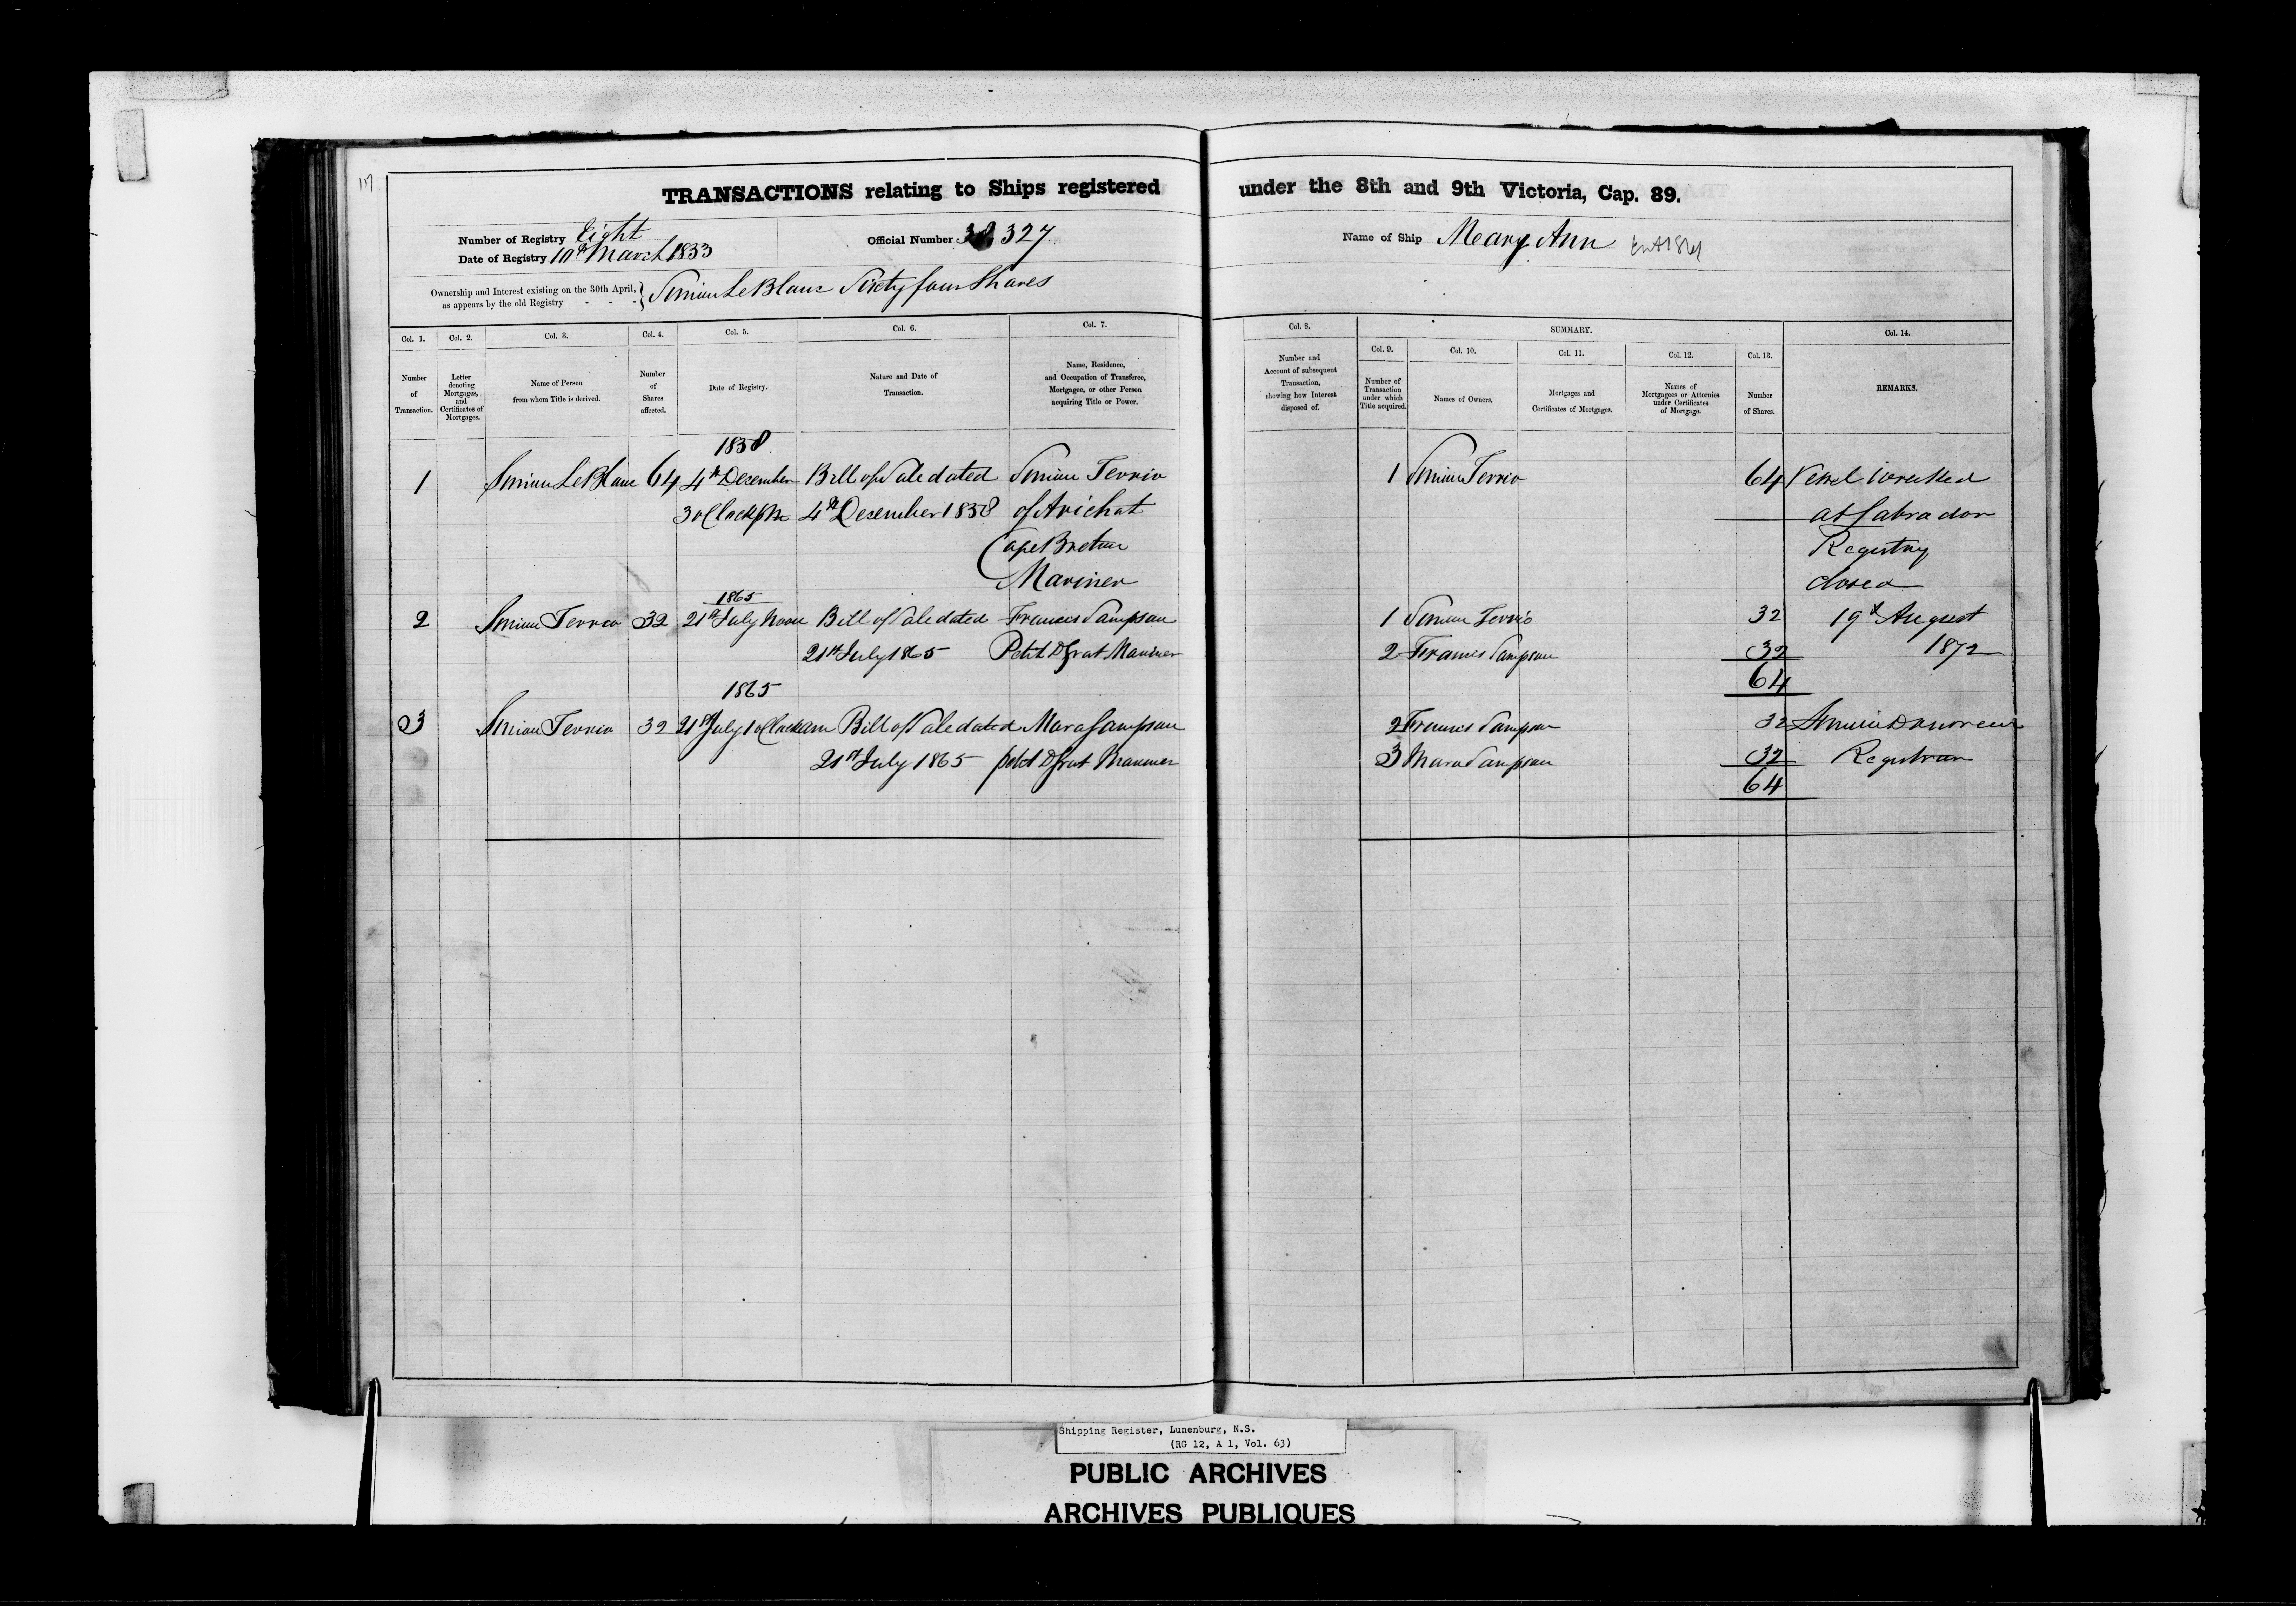 TRANSACTIONS relating to Ships registered under the 8th and 9th Victoria, Cap. 89.
Number of Registry Eight
Date of Registry 10th March 1833
Official Number 327
Name of Ship Mary Ann
Ownership and Interest existing on the 30th April, as appears by the old Registry - - - } Simion LeBlanc Sixty four Shares
Col. 1. Col. 2. Col. 3. Col. 4. Col. 5. Col. 6. Col. 7. Col. 8. SUMMARY. Col. 14.
Col. 9. Col. 10. Col. 11. Col. 12. Col. 13.
Number of Transaction.
Letter denoting Mortgages, and Certificates of Mortgages.
Name of Person from whom Title is derived.
Number of Shares affected.
Date of Registry.
Nature and Date of Transaction.
Name, Residence, and Occupation of Transferee, Mortgagee, or other Person acquiring Title or Power.
Number and Account of subsequent Transaction, showing how Interest disposed of.
Number of Transaction under which Title acquired.
Names of Owners.
Mortgages and Certificates of Mortgages.
Names of Mortgagees or Attornies under Certificates of Mortgage.
Number of Shares.
REMARKS.
1858
1 Simion LeBlanc 64 4th December Bill of Sale dated Simion Terrio 1 Simion Terrio 64 Vessel wrecked
3 oClock pm 4th December 1858 of Arichat at Labrador
Cape Breton Registry
Mariner closed
1865
2 Simion Terrio 32 21st July Noon Bill of Sale dated Francis Sampson 1 Simion Terrio 32 19th August
21st July 1865 Petit D Grat Mariner 2 Francis Sampson 32 1872
64
1865
3 Simion Terrio 32 21st July 1 oClock Bill of Sale dated Mara Sampson 2 Francis Sampson 32
21st July 1865 petit D Grat Mariner 3 Mara Sampson 32 Registrar
64
Shipping Register, Lunenburg, N.S.
(RG 12, A 1, Vol. 63)
PUBLIC ARCHIVES
ARCHIVES PUBLIQUES